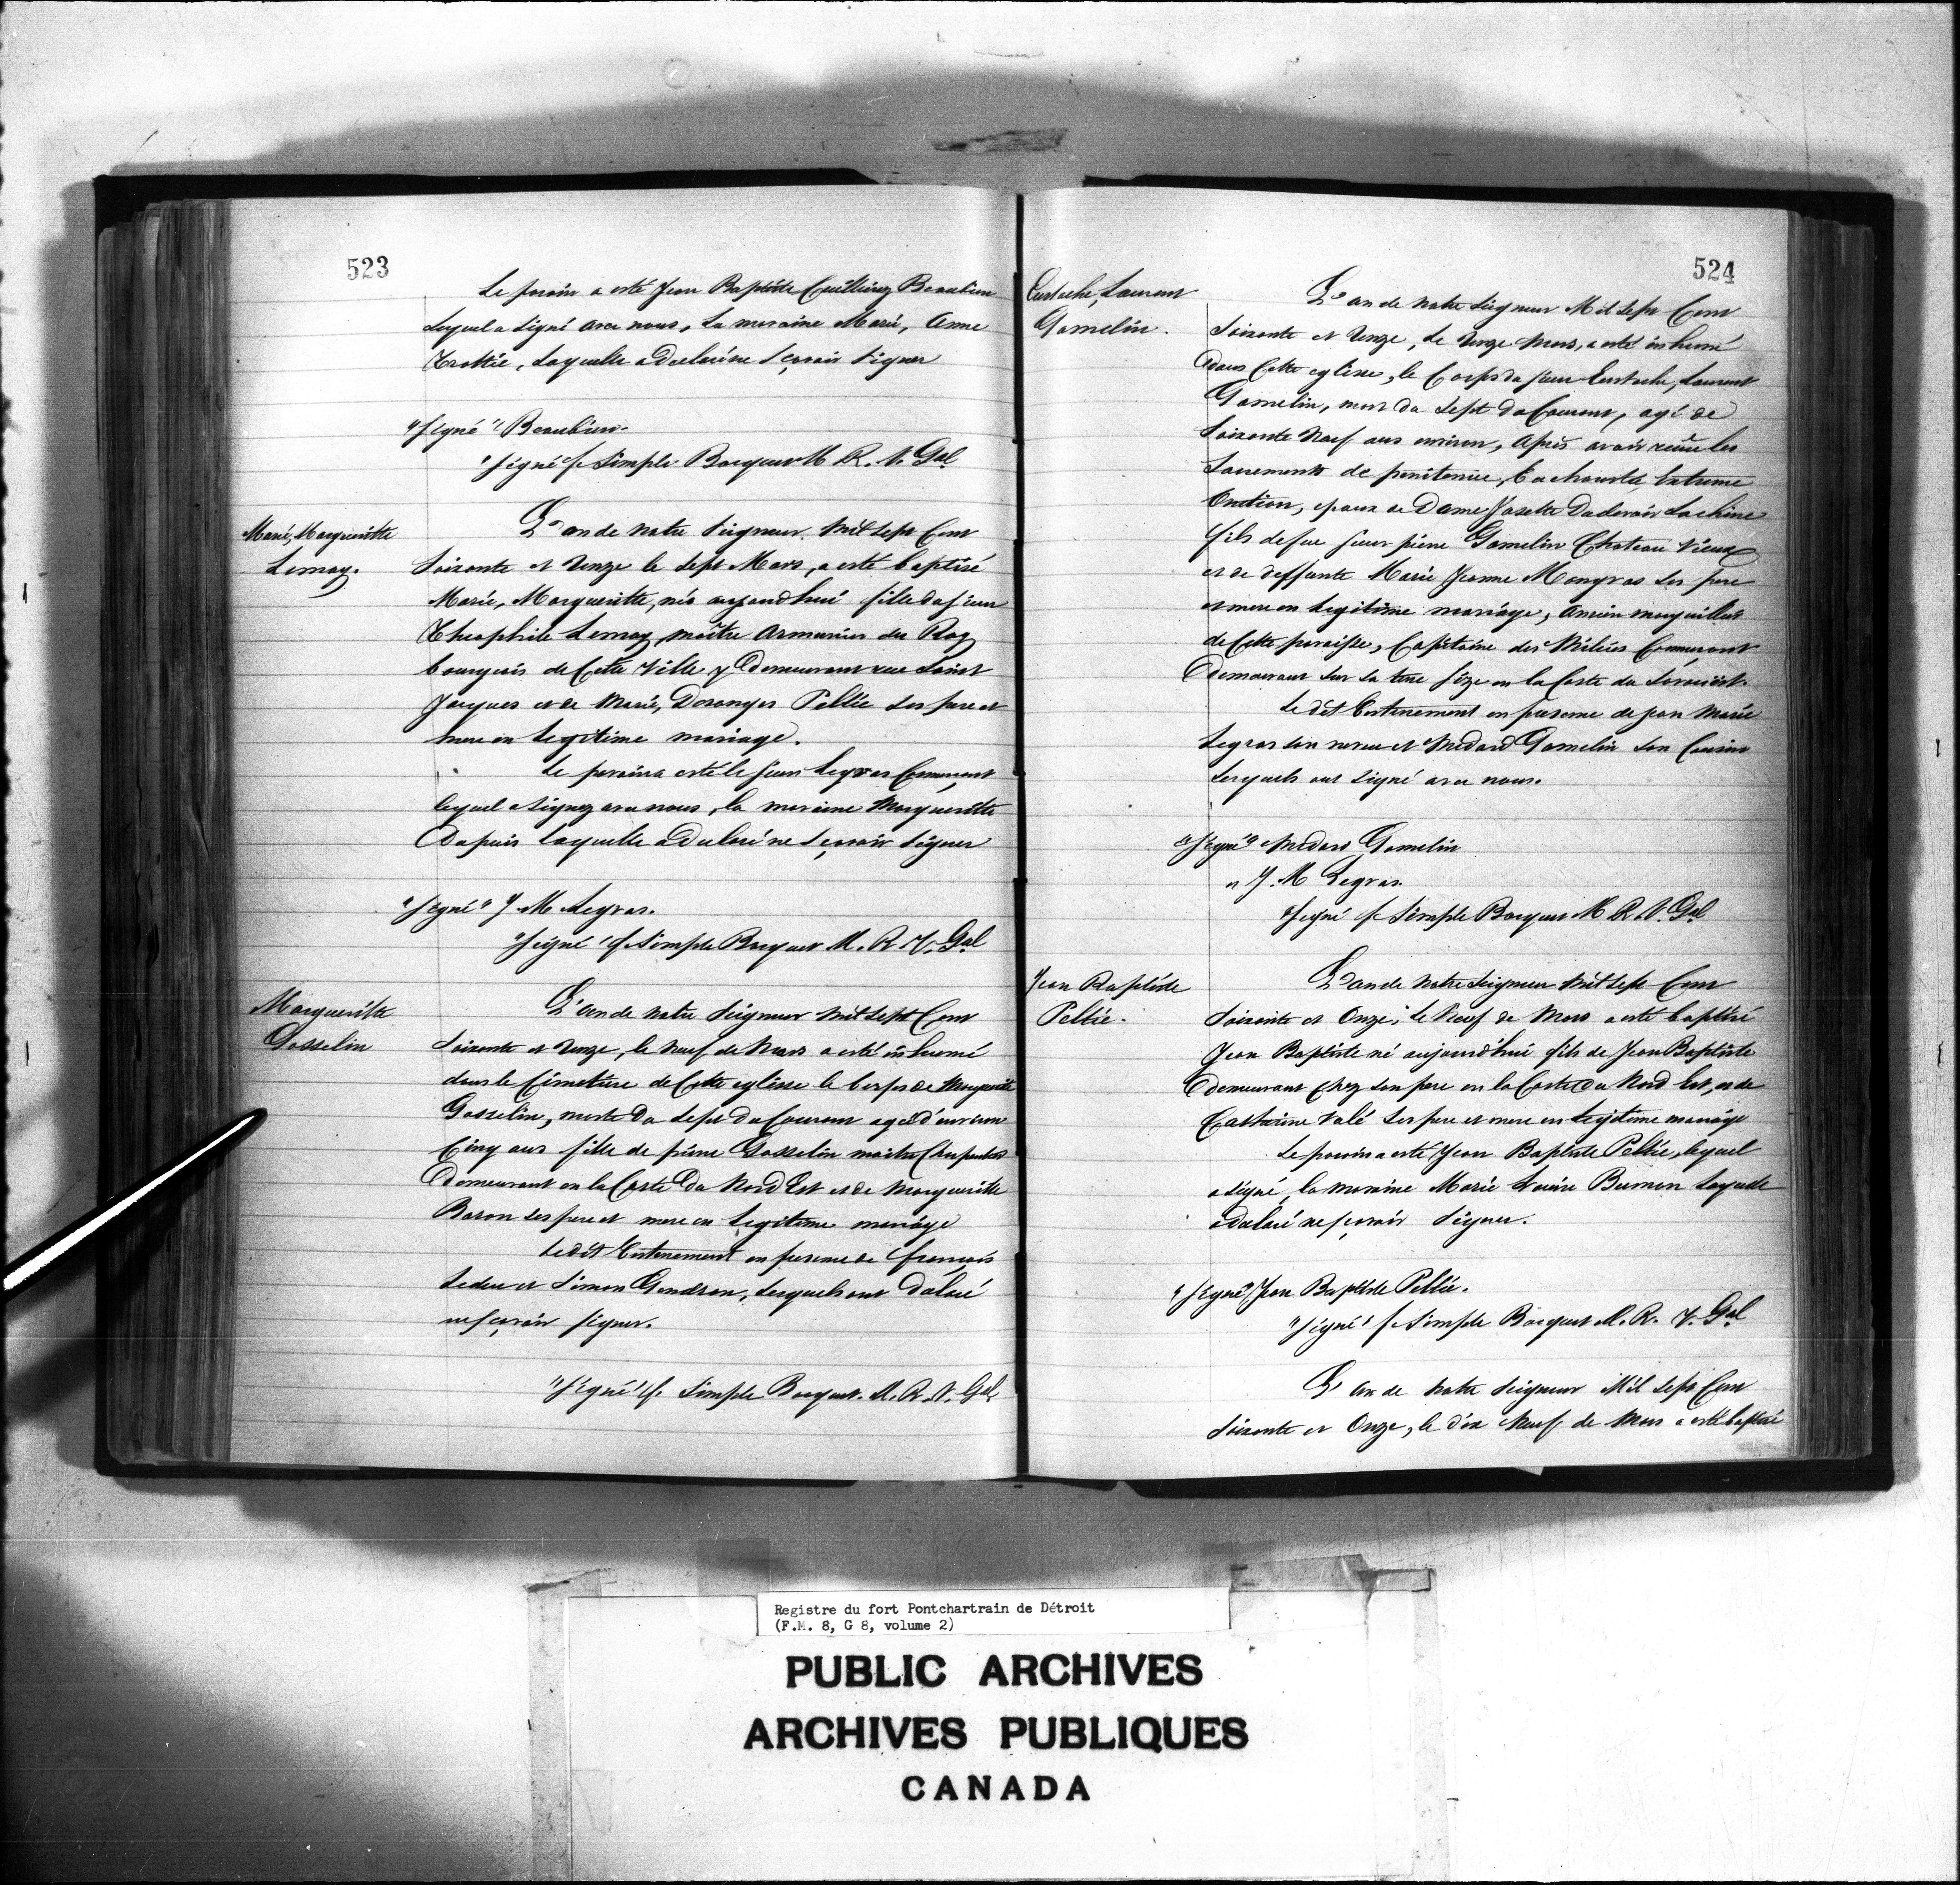 523
Le parain a esté Jean Baptiste Cuillierez Beaubien
Lequel a signé avec nous, La maraine Marie, Anne
Trottié, Laquelle a declaré ne sçavoir signer
"signé" Beaubien.
"signé" f. Simple Bocquet M. R. V. Gal
Marie, Margueritte
Lemay.
L'an de notre Seigneur Mil sept Cent
Soixante et Unze le sept Mars, a esté baptisé
Marie, Margueritte, née aujourdhui fille du sieur
Theophile Lemay maître Armurier du Roy
bourgeois de Cette Ville y Demeurant rue Saint
Jacques et de Marie, Desanges Peltié ses pere et
mere en legitime mariage.
Le parain a esté le sieur Legras Commerçant
lequel a signez avec nous, la maraine Margueritte
Dapuis laquelle a declaré ne sçavoir signer
"signé" J. M. Legras.
"signé" f. Simple Bocquet M. R. V. Gal
Margueritte
Gosselin
L'an de notre Seigneur Mil sept Cent
Soixante et Unze, le neuf de Mars a esté inhumé
dans le Cimetiere de Cette eglisse le corps de Margueritte
Gosselin, morte Du sept du Courant agée d'environ
Cinq ans fille de pierre Gosselin maitre Charpentier
Demeurant en la Coste Du Nord Est et de Margueritte
Baron ses pere et mere en legitime mariage
Le dit Enterrement en presence de françois
Leduc et Simon Gendron, lesquels ont déclaré
ne sçavoir signer.
"signé" f. Simple Bocquet. M. R. V. Gal
524
Eustache, Laurent
Gamelin.
L'an de notre Seigneur Mil sept Cent
Soixante et Unze, Le Unze Mars, a esté inhumé
Dans Cette eglisse, le Corps du sieur Eustache, Laurent
Gamelin, mort du sept du Courant, agé de
Soixante Neuf ans environ, Après avoir reçû les
Sacrements de penitence, Eucharistie, Extreme
Onction, epoux de Dame Josette Dudevoir Lachine
fils de feu sieur pierre Gamelin Chateau Vieux
et de deffunte Marie Jeanne Mongras ses pere
et mere en legitime mariage, Ancien marguillier
de Cette paroisse, Capitaine des Milices Commerçant
Demeurant sur sa terre size en la Coste du Soroüest.
Le dit Enterrement en presence de jean Marie
Legras son neveu et Medard Gamelin son Cousin
Lesquels ont signé avec nous.
"signé" Medard Gamelin
" J. M Legras.
"signé f. Simple Bocquet M. R. V. Gal
Jean Baptiste
Peltié.
L'an de Notre Seigneur Mil sept Cent
Soixante et Onze, le Neuf de Mars a esté baptisé
Jean Baptiste né aujourd'hui fils de Jean Baptiste
Demeurant Chez son pere en la Coste Du Nord Est, et de
Catherine Valé ses pere et mere en legitime mariage
Le parain a esté Jean Baptiste Peltié, lequel
a signé, la maraine Marie Louise Laquelle
a declaré ne sçavoir signer.
"signé" Jean Baptiste Peltié.
"signé" f. Simple Bocquet M. R. V. Gal
L'an de Notre Seigneur Mil sept Cent
Soixante et Onze, le dix Neuf de Mars a esté baptisé
Registre du fort Pontchartrain de Détroit
(F.M. 8, G 8, volume 2)
PUBLIC ARCHIVES
ARCHIVES PUBLIQUES
CANADA